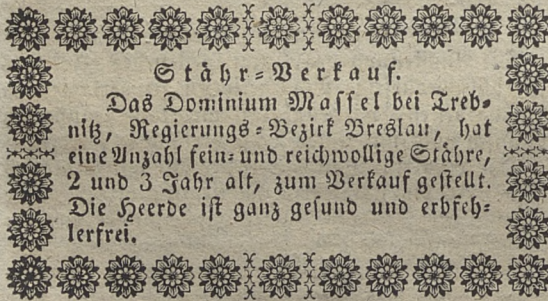 Stähr-Verkauf.
Das Dominium Massel bei Treb-
nitz, Regierungs-Bezirk Breslau, hat
eine Anzahl fein- und reichwollige Stähre,
2 und 3 Jahr alt, zum Verkauf gestellt.
Die Heerde ist ganz gesund und erbfeh-
lerfrei.